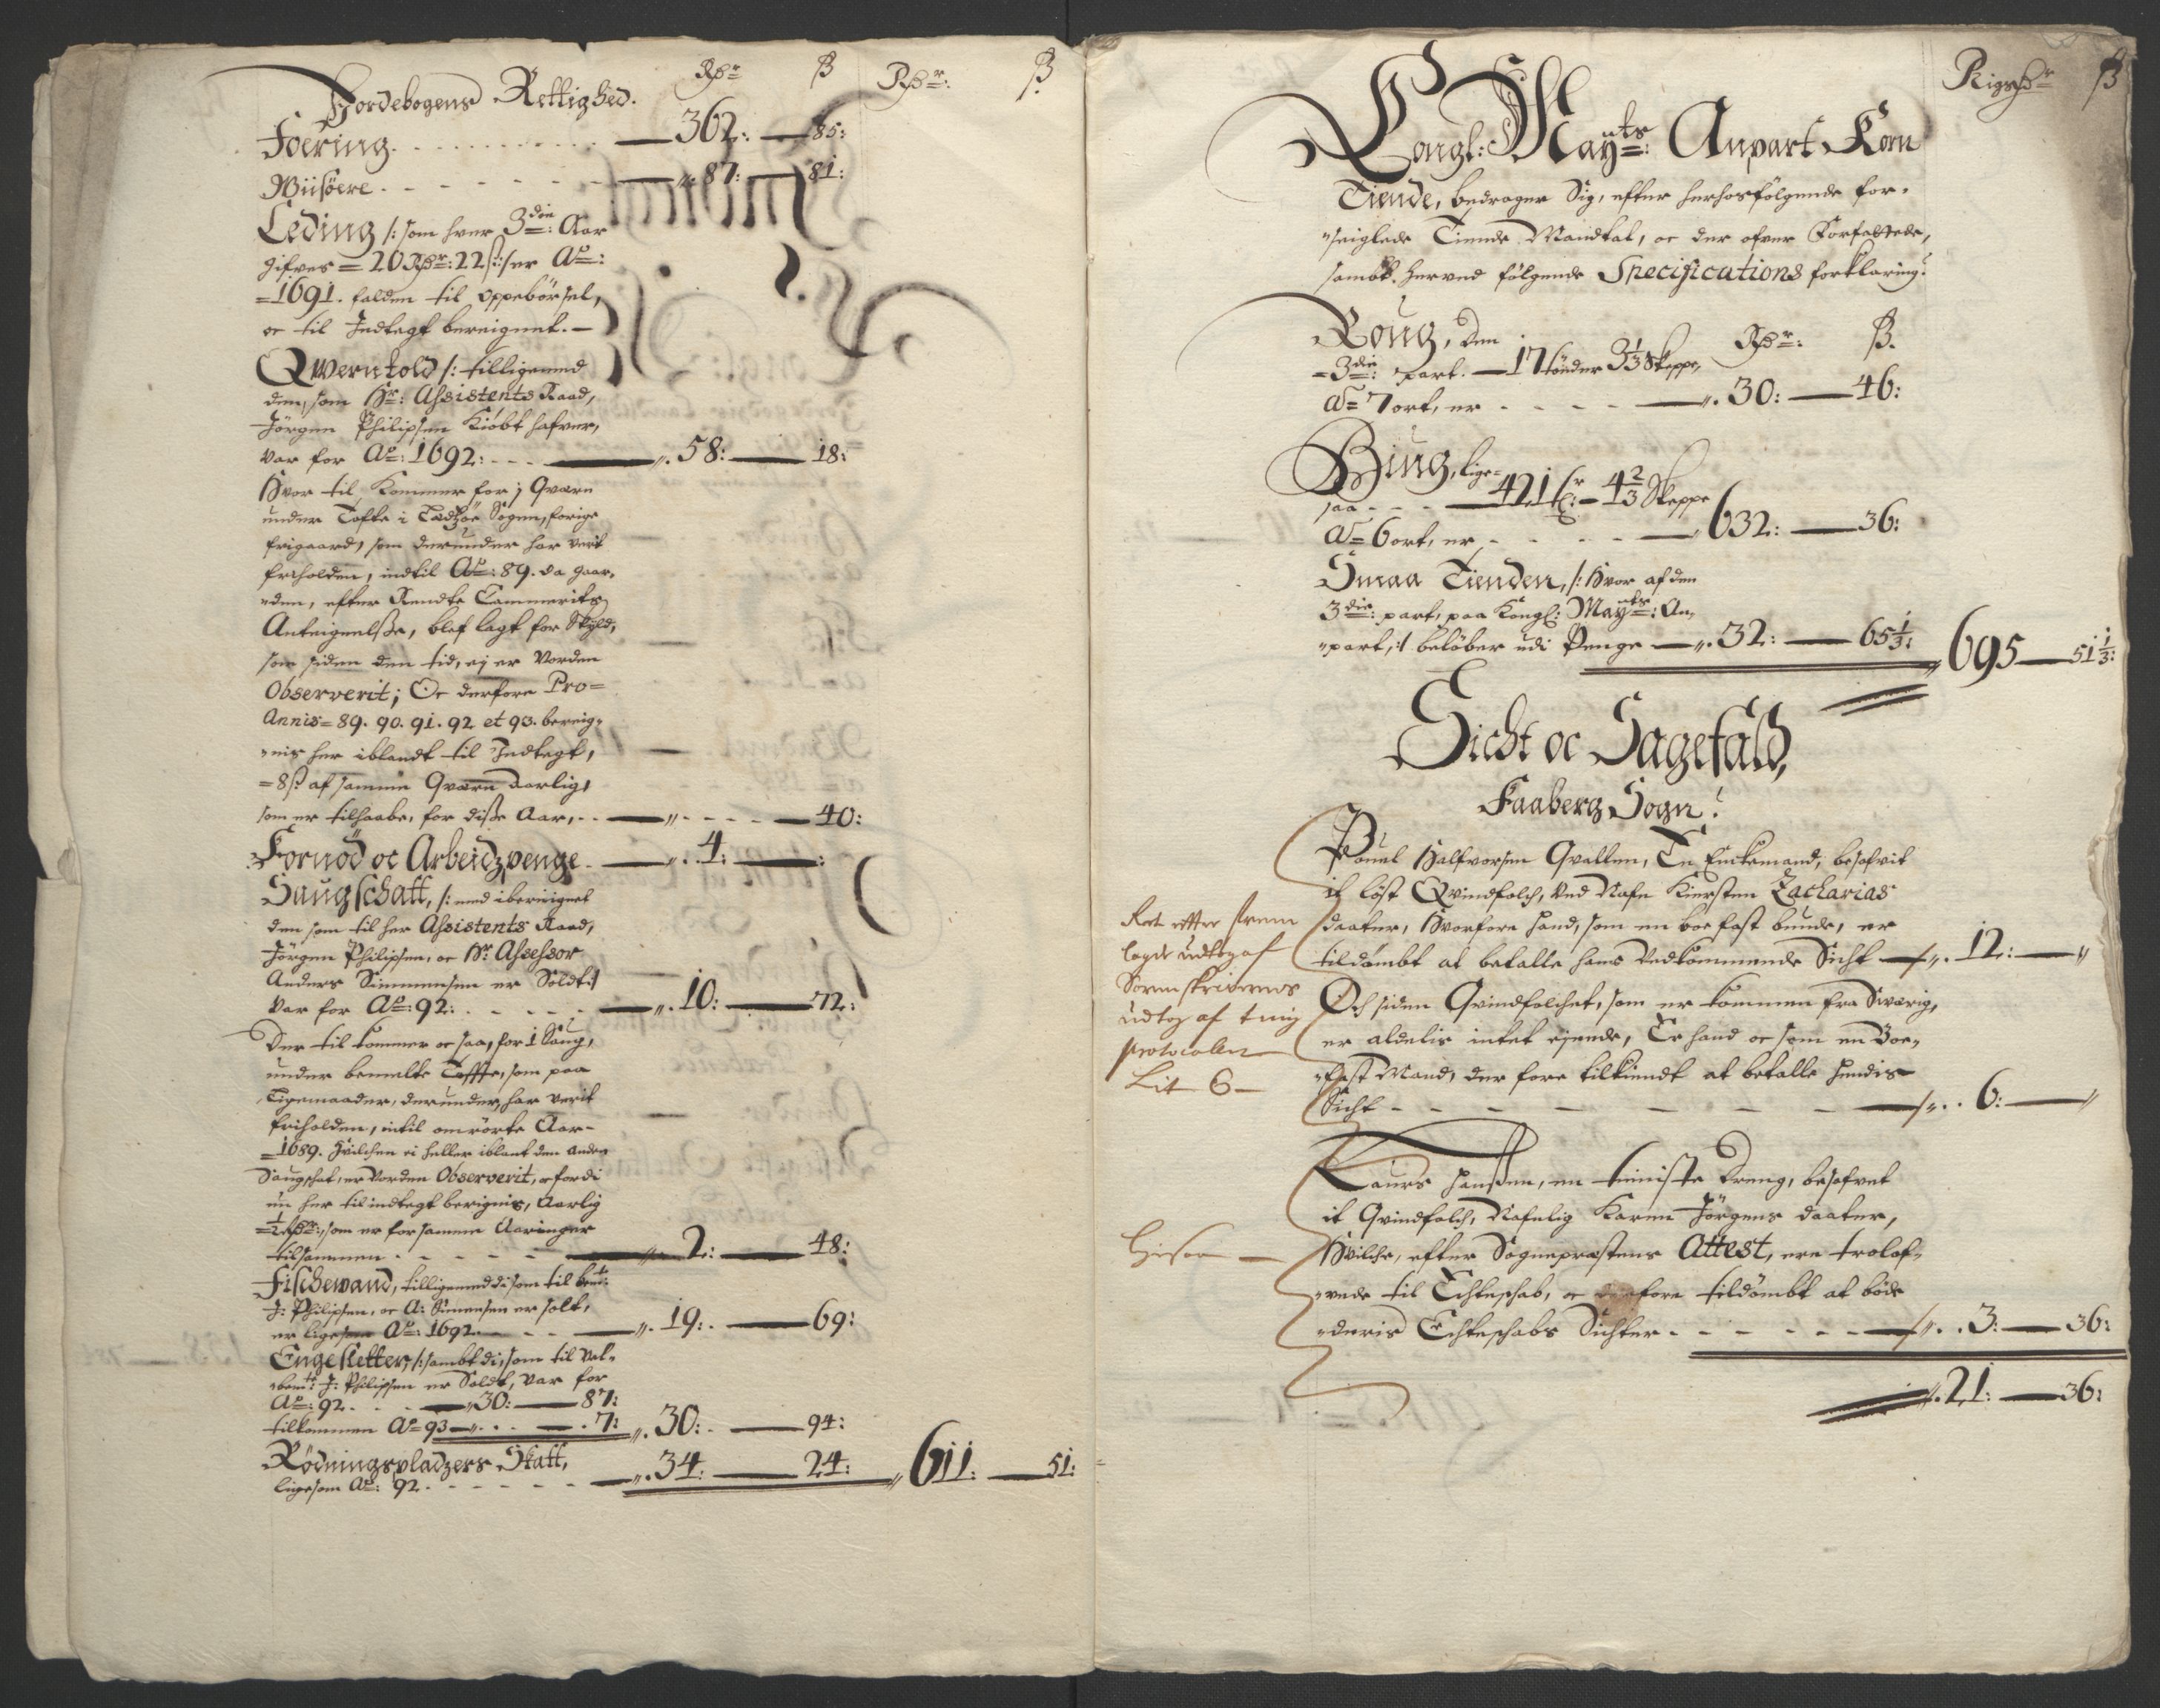 Jordebogens Rettighed. Rdr ß Rdr: ß
Foering. 362: 85:
Wiisöere 87: 81:
Leding /: som hver 3die: Aar
gifves = 20 Rdr: 22 ß :/ er Ao:
=1691. falden til oppebörsel,
oc til Indtegt bereignet.
Qwerntold /: tilligemed
den, som Hr: Assistents Raad,
Jörgen Philipsen Kiöbt hafver,
var for Ao: 1692: 58: 18:
Hvor til Kommer for 1 Qvern
under Tofte i Sogen, forige
frigaard, som derunder har verit
friholden, indtil Ao: 89. da gaar,
"den, efter Rendte Cammerits
Anteignelsße, blef lagt for Skyld,
som siden den tid, ej er vorden
Observerit; Oc derfore Pro=
Annis = 89. 90. 91. 92 et 93. bereig,
"nis her iblandt til Indtegt,
=8 ß af samme Qvern Aarlig,
som er tilhaabe, for diße Aar, 40:
Fornöd oc Arbeidzpenge 4:
Saugschatt, /: med ibereignet
den som til her Assistents Raad,
Jörgen Philipsen, oc Hr Assessor
Anders Simmensen er Soldt :/
var for Ao: 92: 10: 72:
Der til kommer oc saa, for 1 Saug,
under bemelte Toffte, som paa
Ligemaader, derunder, har verit
friholden, intil omrörte Aar
=1689. Hvilchen ei heller iblant den anden
Saugschat, er vorden Observerit, oc fordi
nu her til indtegt berignis, Aarlig
=½ Rdr:, som er for samme Aaringer
tilsammen 2: 48:
Fischewand, tilligemed di som til bemte:
J: Philipsen, oc A: Simensen er solt,
er ligesom Ao: 1692 19: 69:
Engesletter, /: sambt di, som til vel,
"bemte: J: Philipsen er Soldt, var for
Ao: 92. 30: 87:
tilkommen Ao 93 7: 30: 94:
Rödningspladzers Skatt,
ligesom Ao: 92. 34: 24: 611: 51:
Rigsdr ß
Kongl: Mayts: Anpart Korn
Tiende, bedrager Sig, efter herhosfölgende for,
"seiglede Tiende Mandtal, oc der ofver forfattede,
sambt herved fölgende Specifications forklaring:
Roug, den Rdr: ß.
=3die: part. 17 tönder 3⅓ Skeppe,
a= 7 ort, er 30: 46:
Biug, lige=
saa 421 tr: 4⅔ Skeppe
a= 6 ort, er 632: 36:
Smaa Tienden, /: Hvor af den
3die: part, paa Kongl: Mayts: An,
"part, :/ belöber udi Penge 32: 65⅓: 695 51⅓:
Sicht oc Sagefald,
Faaberg Sogn:
Pouel Halfvorsen Qvallen, En Enckemand, besofvit
it löst Qvindfolch, ved Nafn Kiersten Zacharias
daater, Hvorfore hand, som en boe fast bunde, er
tildömbt at betalle hans vedkommende Sicht 12:
Och siden Qvindfolchet, som er kommen fra Swerig,
er aldelis intet ejende, Er hand oc som en Boe,
"fast Mand, der fore tilkiendt at betalle hendis
Sicht 6:
Ret effter frem
lagde udtog af
Sorenskriverens
udtog af ting
protocolen
Lit 6
Laurs Hanßen, en tieniste dreng, besofvet
it Qvindfolch, Nafnlig Karen Jörgens daater,
Hvilche, efter Sogneprestens Attest, ere trolof,
"vede til Echteschab, oc derfore tildömbt at böde
"deris Echteschabs Sichter 3: 36:
21: 36: